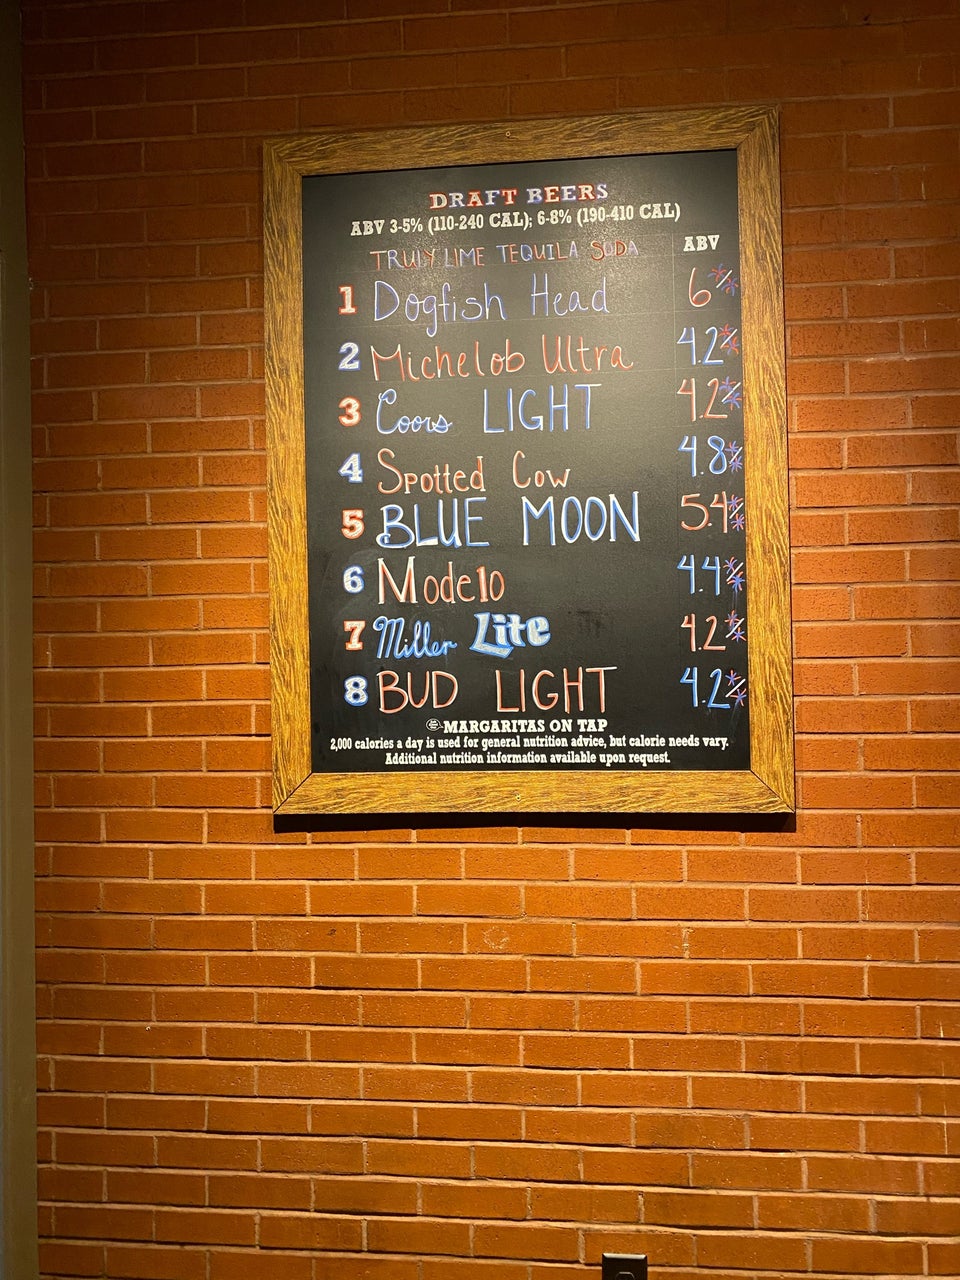 DRAFT BEERS
ABV 3-5% (110-240 CAL); 6-8% (190-410 CAL)
TRULY LIME TEQUILA SODA ABV
1 Dogfish Head 6%
2 Michelob Ultra 4.2%
3 Coors LIGHT 4.2%
4 Spotted Cow 4.8%
5 BLUE MOON 5.4%
6 Modelo 4.4%
7 Miller Lite 4.2%
8 BUD LIGHT 4.2%
MARGARITAS ON TAP
2,000 calories a day is used for general nutrition advice, but calorie needs vary.
Additional nutrition information available upon request.